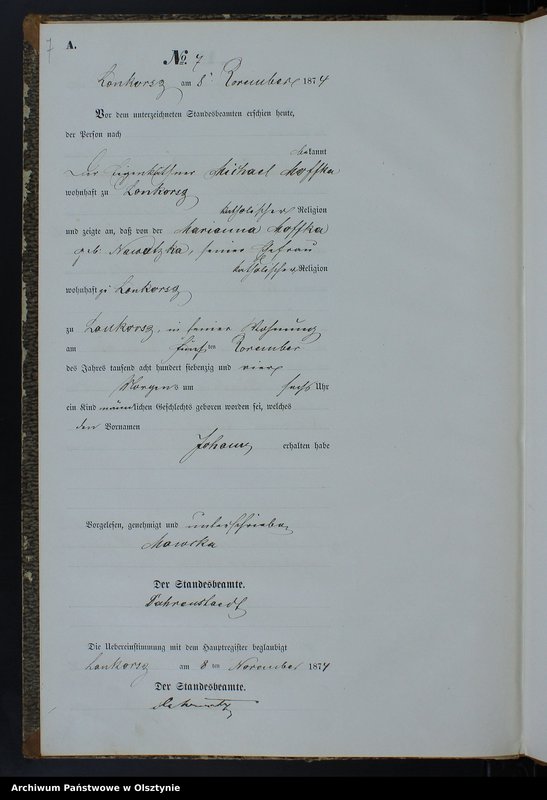 7
A.
No. 7
Lonkorsz am 8ten November 1874
Vor dem unterzeichneten Standesbeamten erschien heute,
der Person nach
bekannt
Der Eigenkäthner Michael Moffka
wohnhaft zu Lonkorsz
katholischer Religion
und zeigte an, daß von der Marianna Moffka
geb. Nawatzka, seiner Ehefrau
katholischer Religion
wohnhaft zu Lonkorsz
zu Lonkorsz, in seiner Wohnung
am fünften November
des Jahres tausend acht hundert siebenzig und vier
Morgens um sechs Uhr
ein Kind männlichen Geschlechts geboren worden sei, welches
den Vornamen
Johann erhalten habe
Vorgelesen, genehmigt und unterschrieben
Mowska
Der Standesbeamte.
Die Uebereinstimmung mit dem Hauptregister beglaubigt
Lonkorsz am 8ten November 1874
Der Standesbeamte.
Archiwum Państwowe w Olsztynie